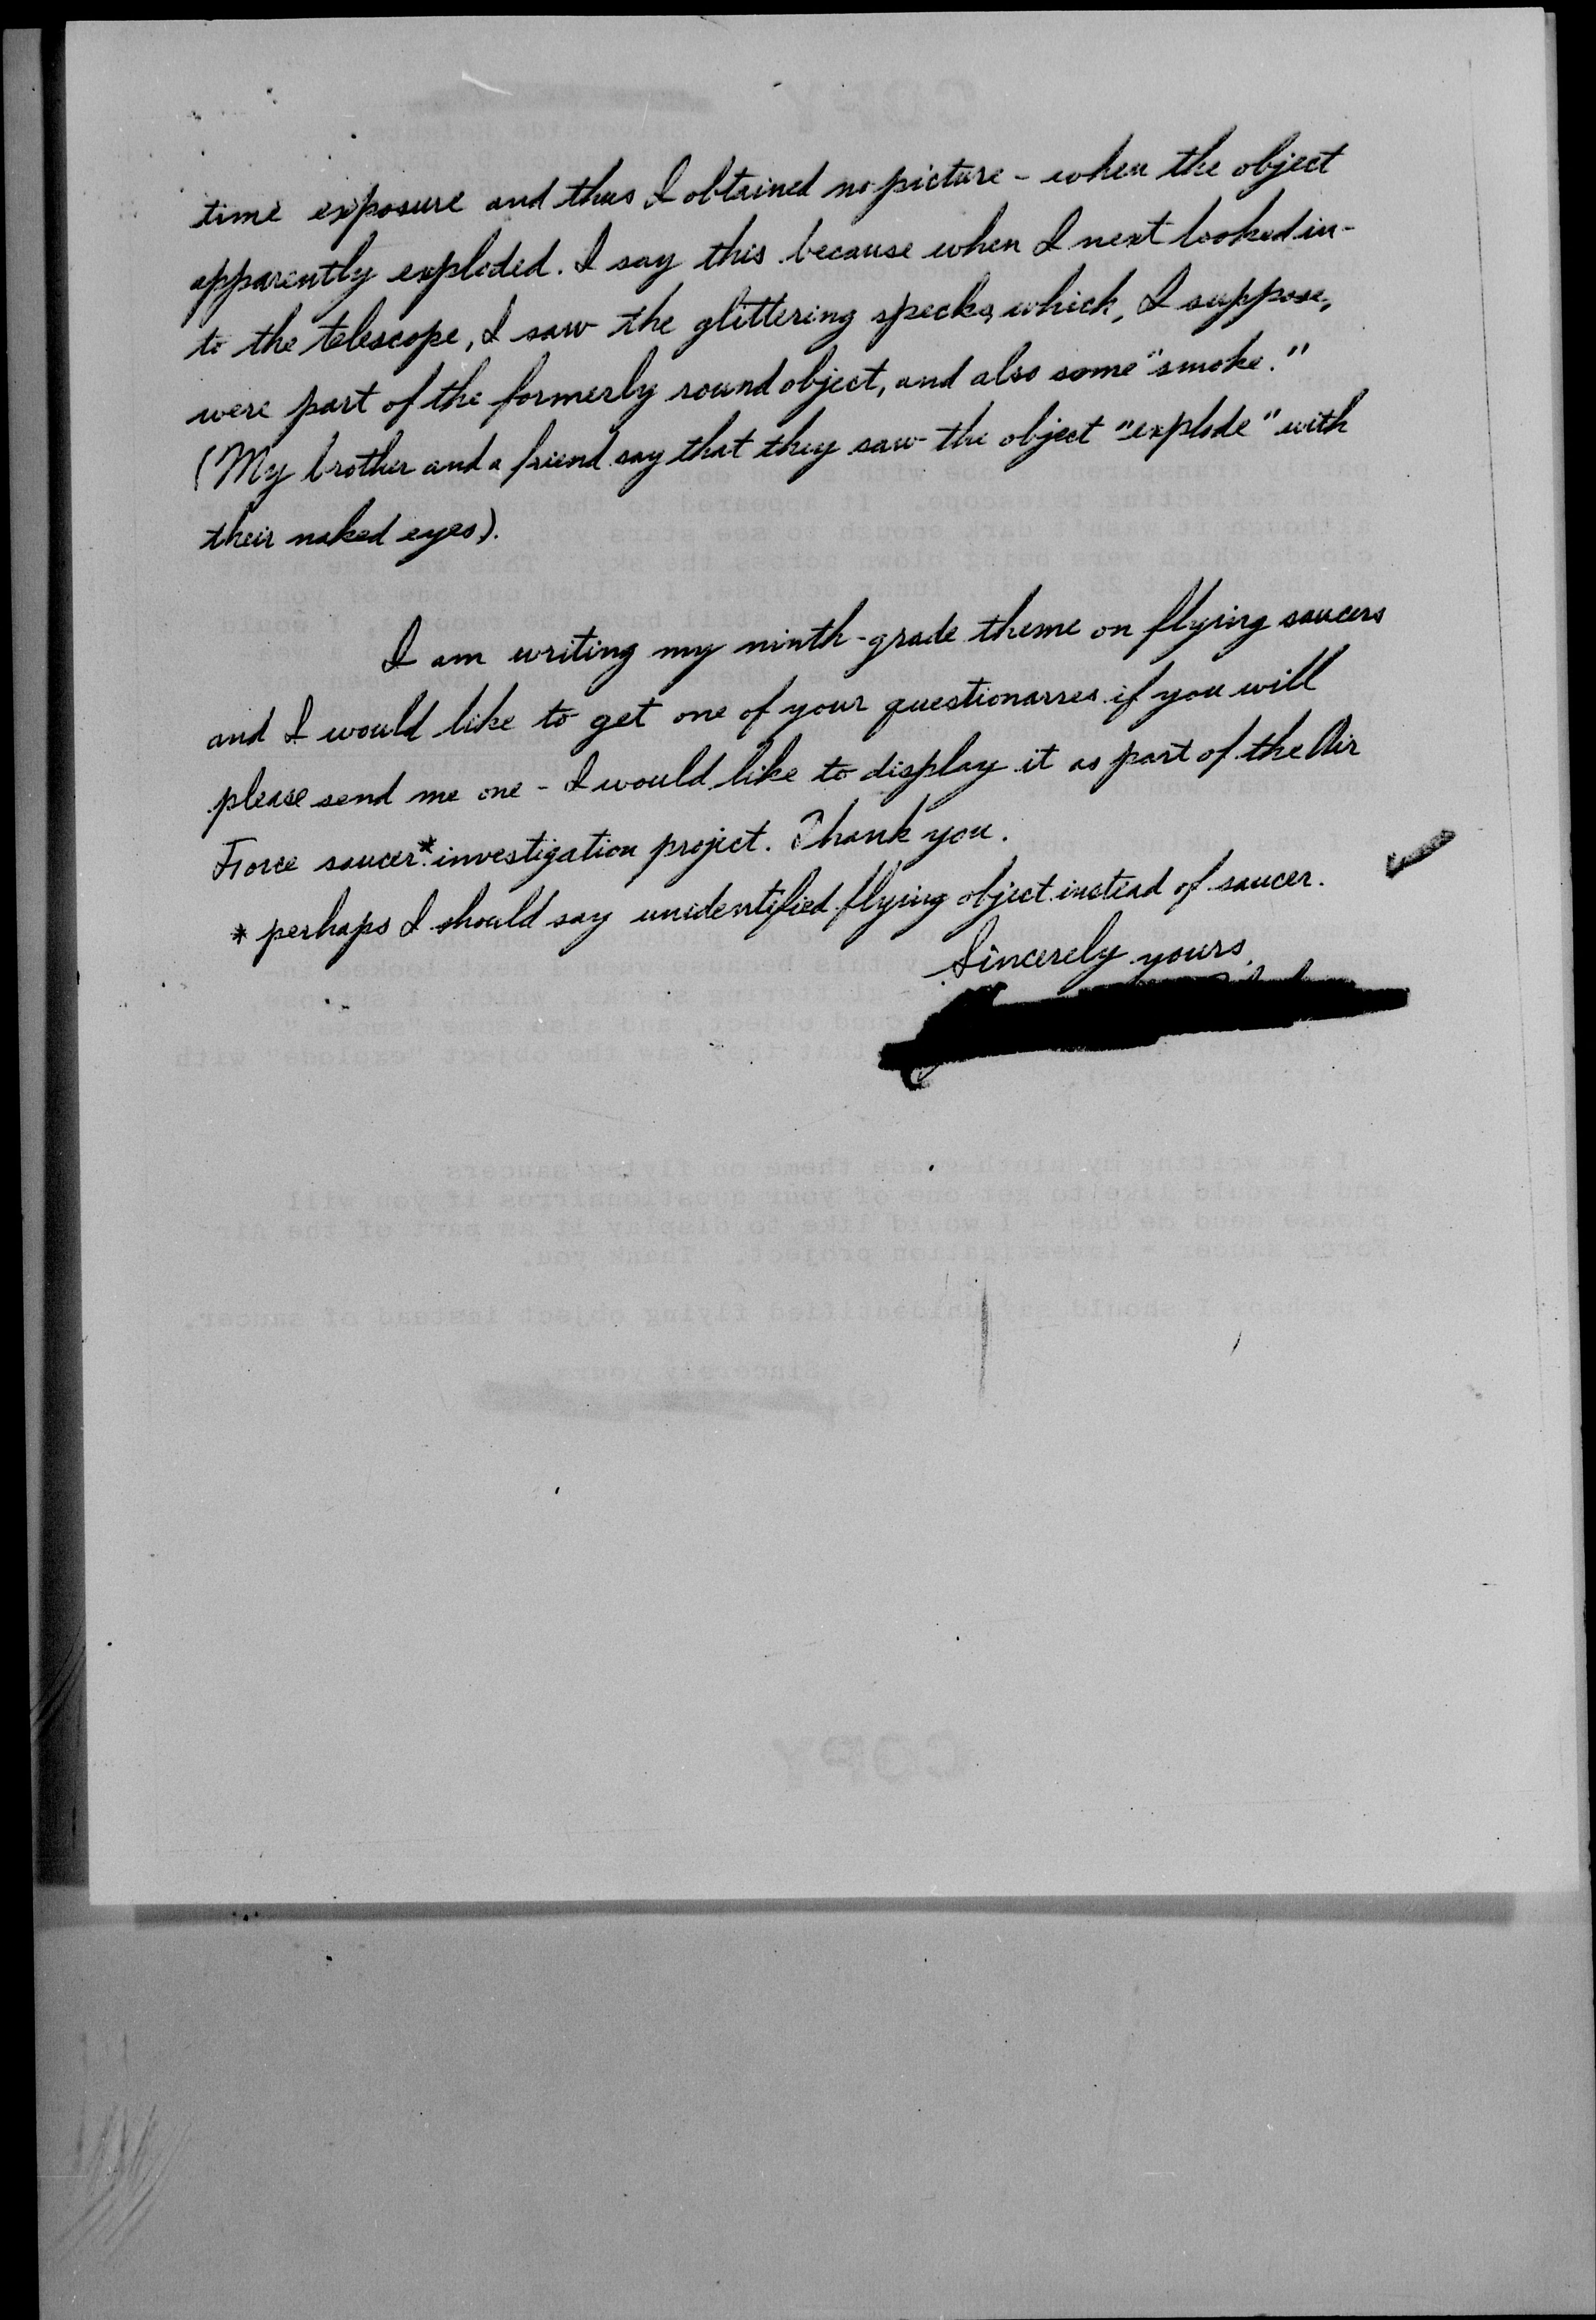 time exposure and thus I obtained no picture - when the object
apparently exploded. I say this because when I next looked in-
to the telescope, I saw the glittering specks, which, I suppose,
were part of the formerly round object, and also some "smoke."
(My brother and a friend say that they saw the object "explode" with
their naked eyes).
I am writing my ninth-grade theme on flying saucers
and I would like to get one of your questionarres if you will
please send me one - I would like to display it as part of the Air
Force saucer* investigation project. Thank you.
* perhaps I should say unidentified flying object instead of saucer.
Sincerely yours,
COPY